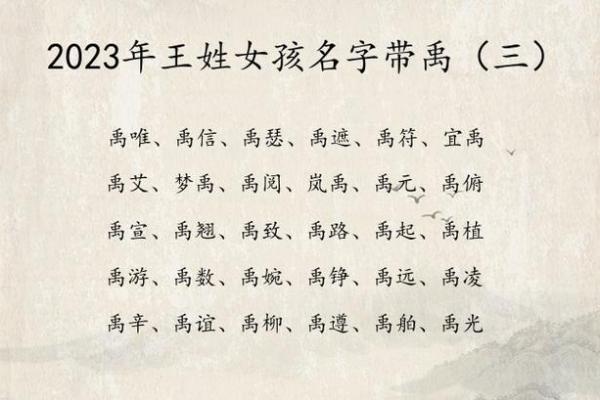 2023年王姓女孩名字带禹（三）
禹唯、禹信、禹瑟、禹遮、禹符、宜禹
禹艾、梦禹、禹阅、岚禹、禹元、禹俯
禹宣、禹翘、禹致、禹路、禹起、禹植
禹游、禹数、禹婉、禹铮、禹远、禹凌
禹辛、禹谊、禹柳、禹遵、禹舶、禹光